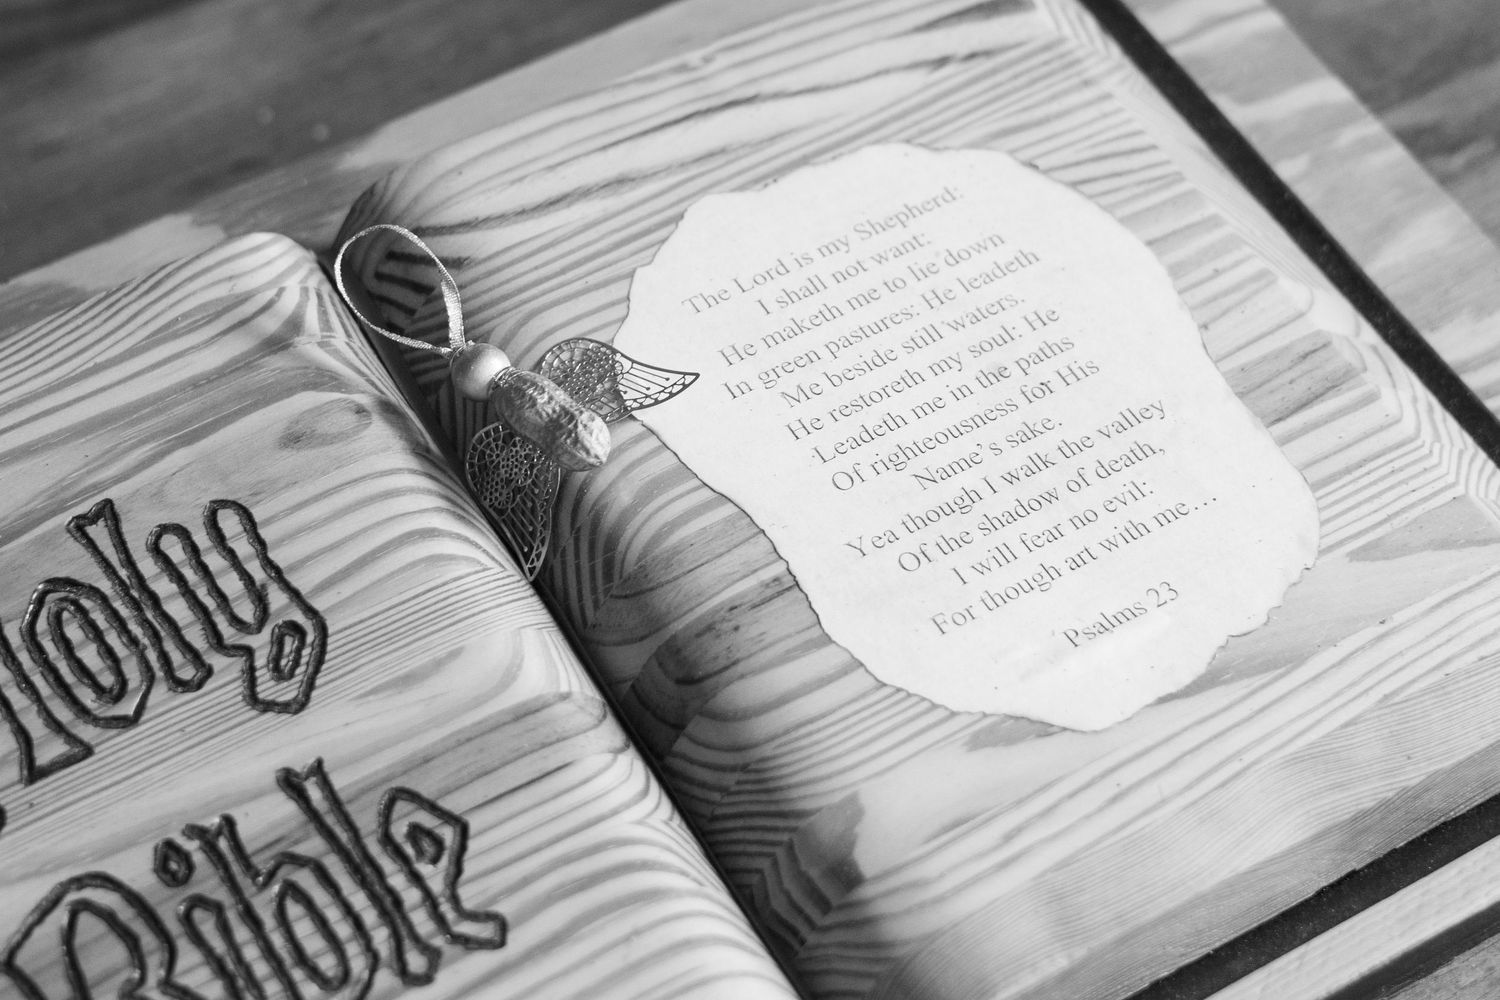 Holy
Bible
The Lord is my Shepherd:
I shall not want:
He maketh me to lie down
In green pastures: He leadeth
Me beside still waters.
He restoreth my soul: He
Leadeth me in the paths
Of righteousness for His
Name's sake.
Yea though I walk the valley
Of the shadow of death,
I will fear no evil:
For though art with me...
Psalms 23